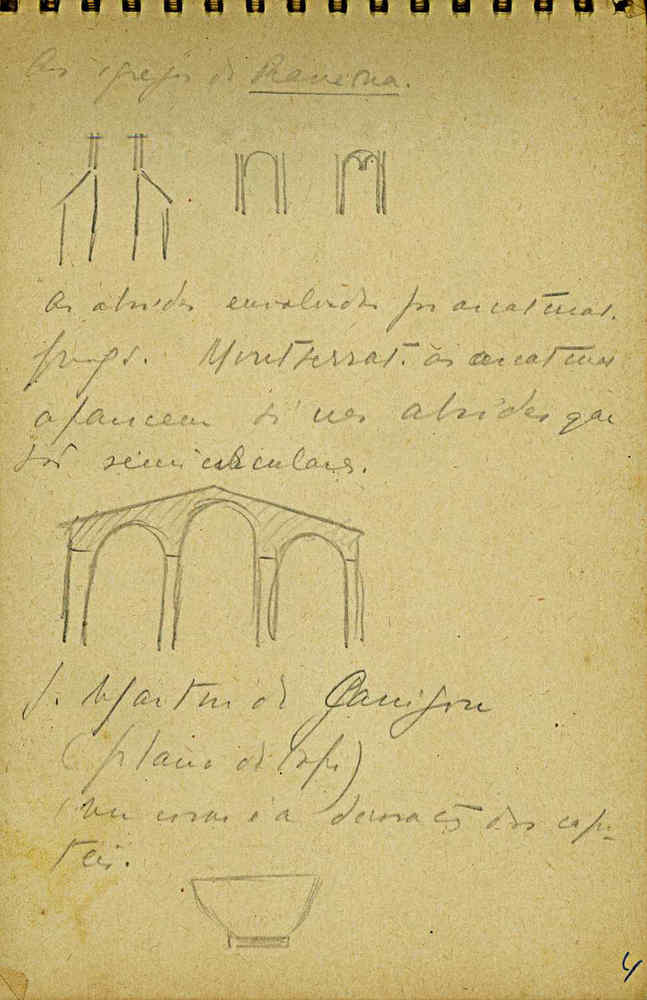 As igrejas de Ravenna.
As absides envolvidas por arcaturas.
Montserrat. as arcaturas
aparecem só nas absides que
são semicirculares.
S. Martin de Canigou
(plano de Copt)
Ver como é a decoração dos capi-
teis.
4